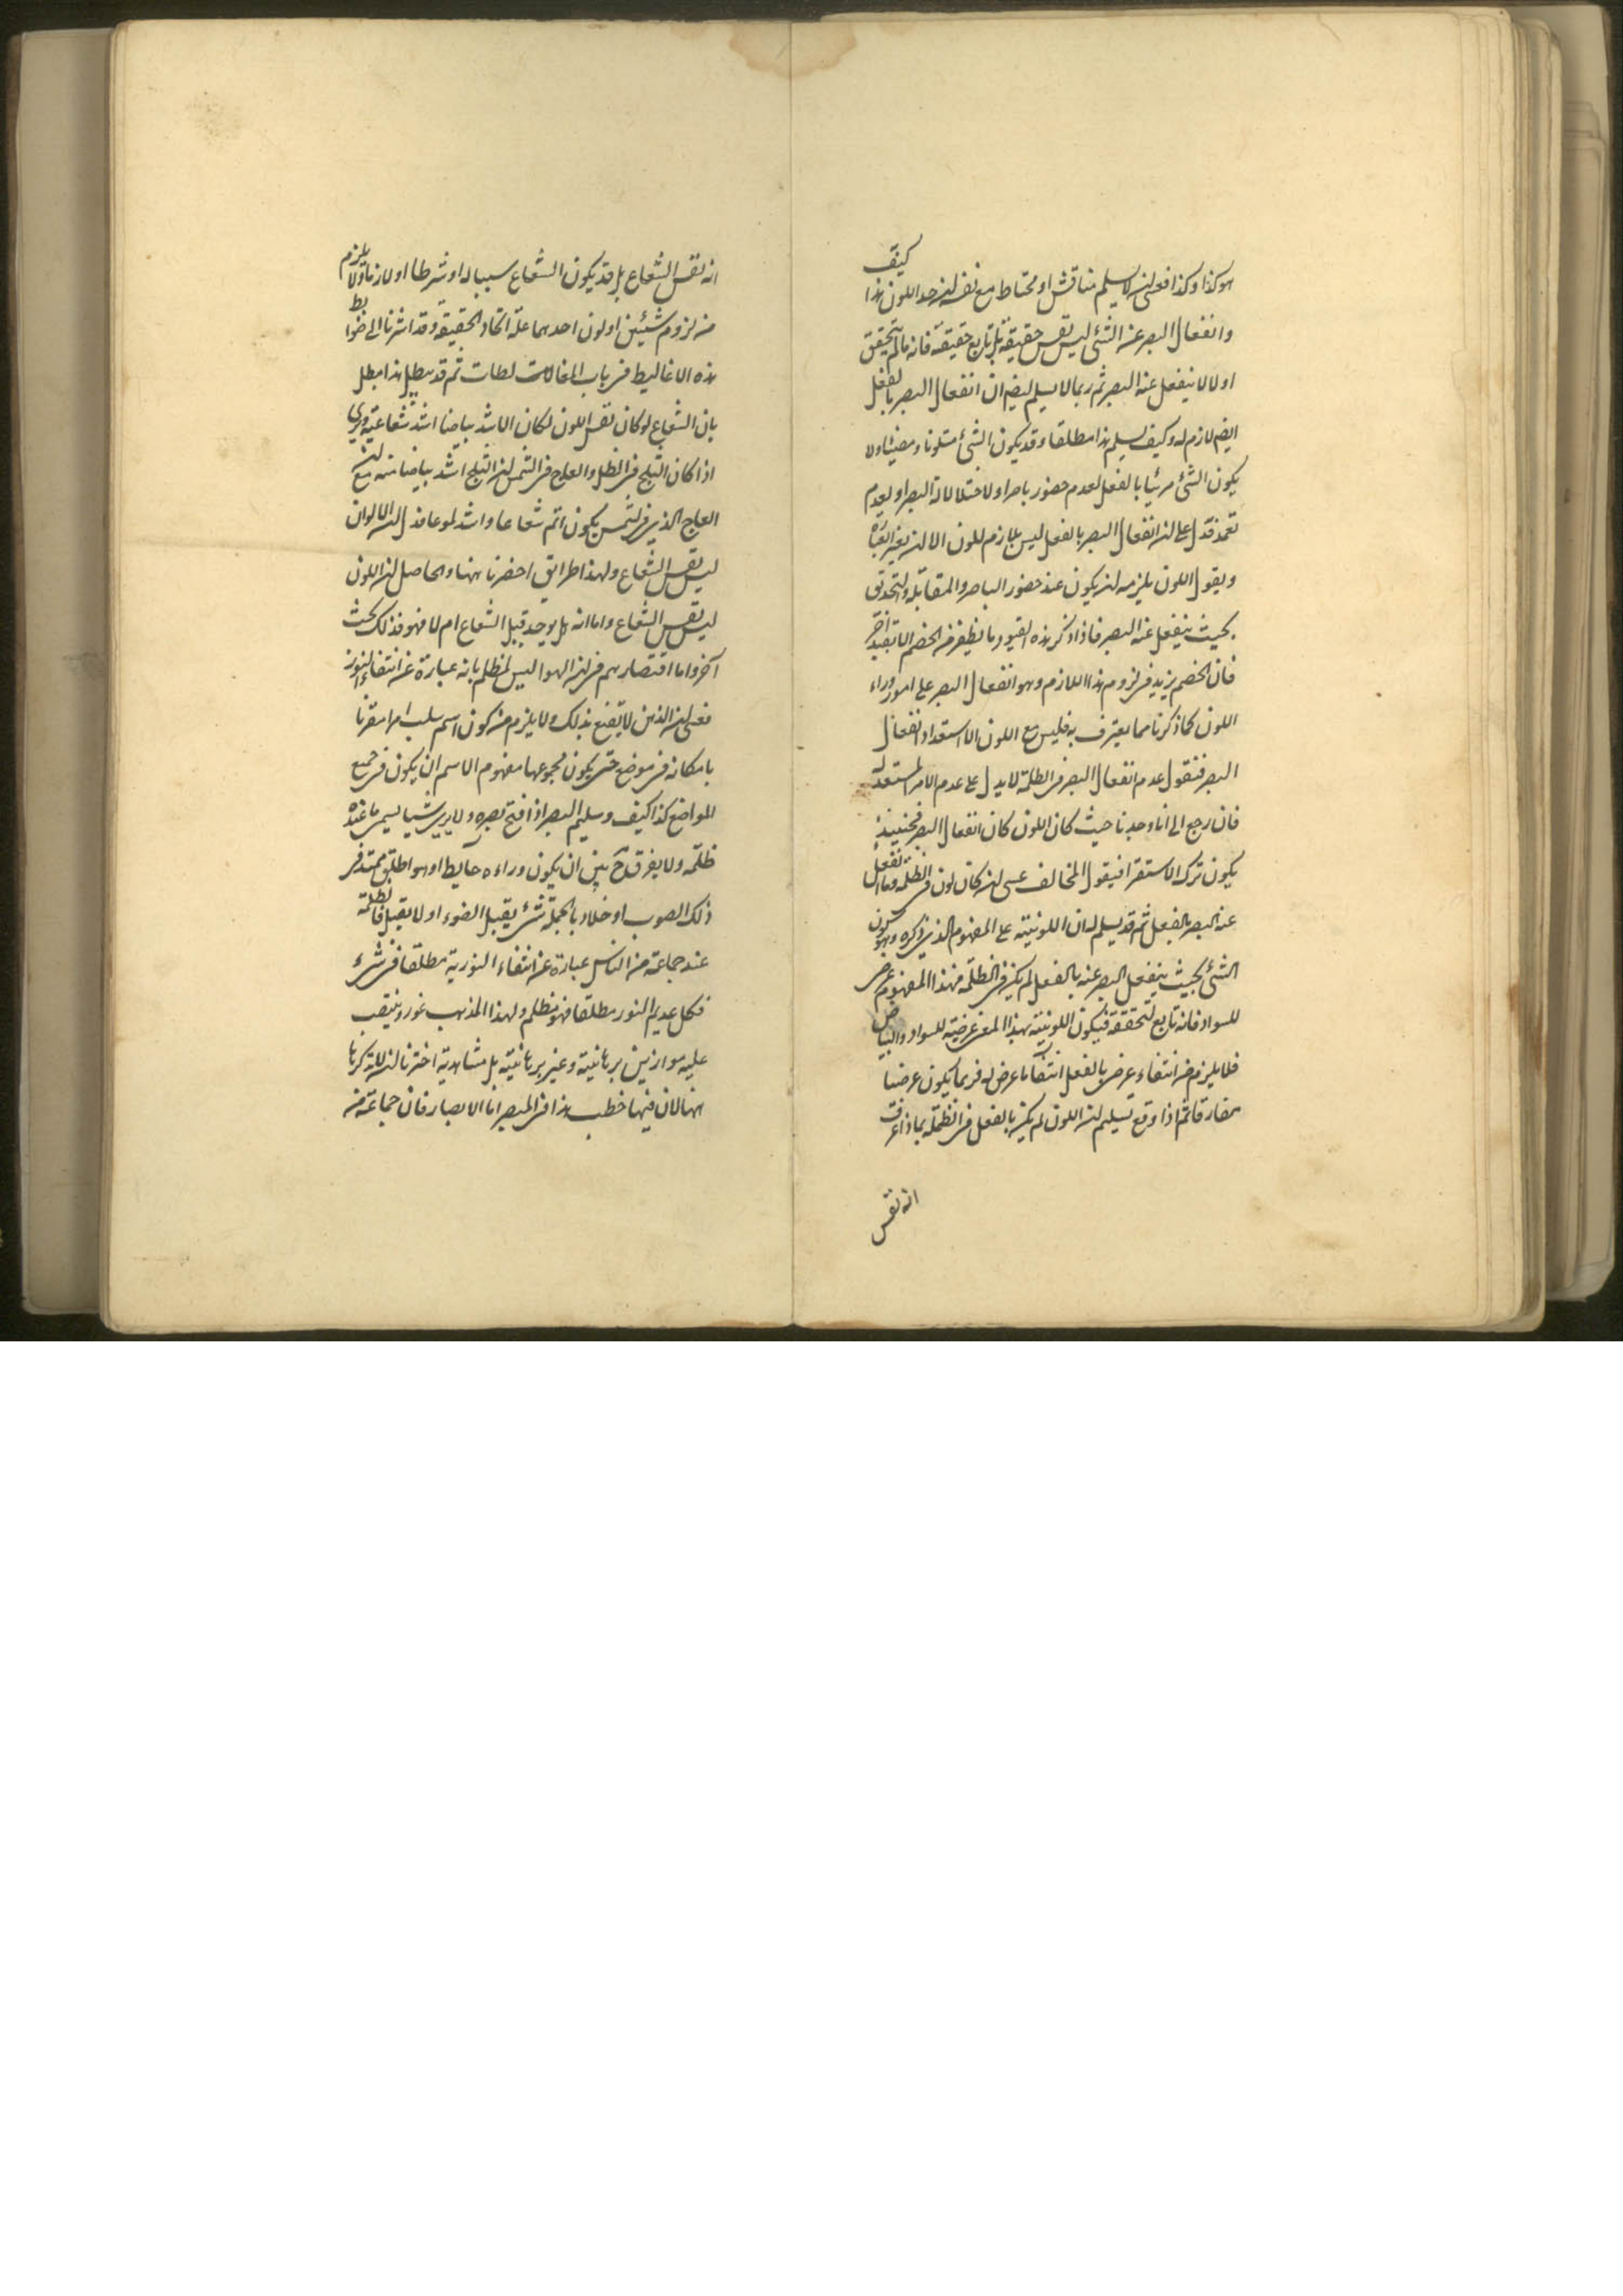 هو كذا وكذا فعسى ان لا يسلم مناقش او محتاط مع نفسه ان حد اللون هذا كيف
وانفعال البصر عن الشئ ليس نفس حقيقته بل تابع حقيقته فانه ما لم يتحقق
اولا لا ينفعل عنه البصر ثم ربما لا يسلم ايضا ان انفعال البصر بالفعل
ايضا لازم له وكيف يسلم هذا مطلقا وقد يكون الشئ متلونا ومضيئا ولا
يكون الشئ مرئيا بالفعل لعدم حضور باصر او لاختلال آلة البصر او لعدم
فدل على ان انفعال البصر بالفعل ليس بلازم للون الا ان يغير العبارة
ويقول اللون يلزمه ان يكون عند حضور الباصر والمقابلة والتحدق
بحيث ينفعل عنه البصر فاذا ذكر هذه القيود ما يظفر من الخصم الا بقيد آخر
فان الخصم يزيد فى لزوم هذا اللازم وهو انفعال البصر على امور وراء
اللون كما ذكرنا مما يعترف به فليس مع اللون الا استعداد انفعال
البصر فنقول عدم انفعال البصر فى الظلمة لا يدل على عدم الامر المستعد له
فان رجع الى انا وجدنا حيث كان اللون كان انفعال البصر فحينئذ
يكون ترك الاستقرا فيقول المخالف عسى ان كان لون فى الظلمة وما انفعل
عنه البصر بالفعل ثم قد يسلم له ان اللونية على المفهوم الذى ذكره وهو كون
الشئ بحيث ينفعل البصر عنه بالفعل لم يكن فى الظلمة فهذا المفهوم عرض
للسواد فانه تابع لتحققه فيكون اللونية بهذا المعنى عرضية للسواد والبياض
فلا يلزم من انتفاء عرضى بالفعل انتفاء ما عرض له فربما يكون عرضيا
مفارقا ثم اذا وقع تسليم ان اللون لم يكن بالفعل فى الظلمة بماذا عرفت
انه نفس
انه نفس الشعاع بل قد يكون الشعاع سببا له او شرطا او لازما ولا يلزم
من لزوم شيئين او لون احدهما علة اتحاد الحقيقة وقد اشرنا الى ضوابط
هذه الاغاليط فى باب المغالطات ثم قد يبطل هذا مبطل
بان الشعاع لو كان نفس اللون لكان الاشد بياضا اشد شعاعية ويرى
اذا كان الثلج فى الظل والعاج فى الشمس ان الثلج اشد بياضا منه مع ان
العاج الذى فى الشمس يكون اتم شعاعا واشد لمعانا فدل ان الالوان
ليس نفس الشعاع ولهذا طرايق احضرنا ههنا والحاصل ان اللون
ليس نفس الشعاع واما انه هل يوجد قبل الشعاع ام لا فهو فذلك بحث
آخر واما اقتصارهم فى ان الهوا ليس بمظلم بانه عبارة عن انتفاء النور
فعسى ان الذهن لا يقنع بذلك ولا يلزم من كون اسم سلب امر مقرنا
بامكانه فى موضع حتى يكون مجموعهما مفهوم الاسم ان يكون فى جميع
المواضع كذا كيف وسليم البصر اذا فتح بصره ولا يرى شيئا يسمى ما عنده
ظلمة ولا يفرق ح بين ان يكون وراءه حايط او هواء ممتد فى
ذلك الصوب او خلاء وبالجملة شئ يقبل الضوء او لا يقبل فالظلمة
عند جماعة من الناس عبارة عن انتفاء النورية مطلقا فى شئ
فكل عديم النور مطلقا فهو مظلم ولهذا المذهب غور وينقب
عليه موازين برهانية وغير برهانية بل مشاهدية اخترنا ان لا نذكرها
ههنا لان فيها خطب هذا فى المبصر اما الابصار فان جماعة من